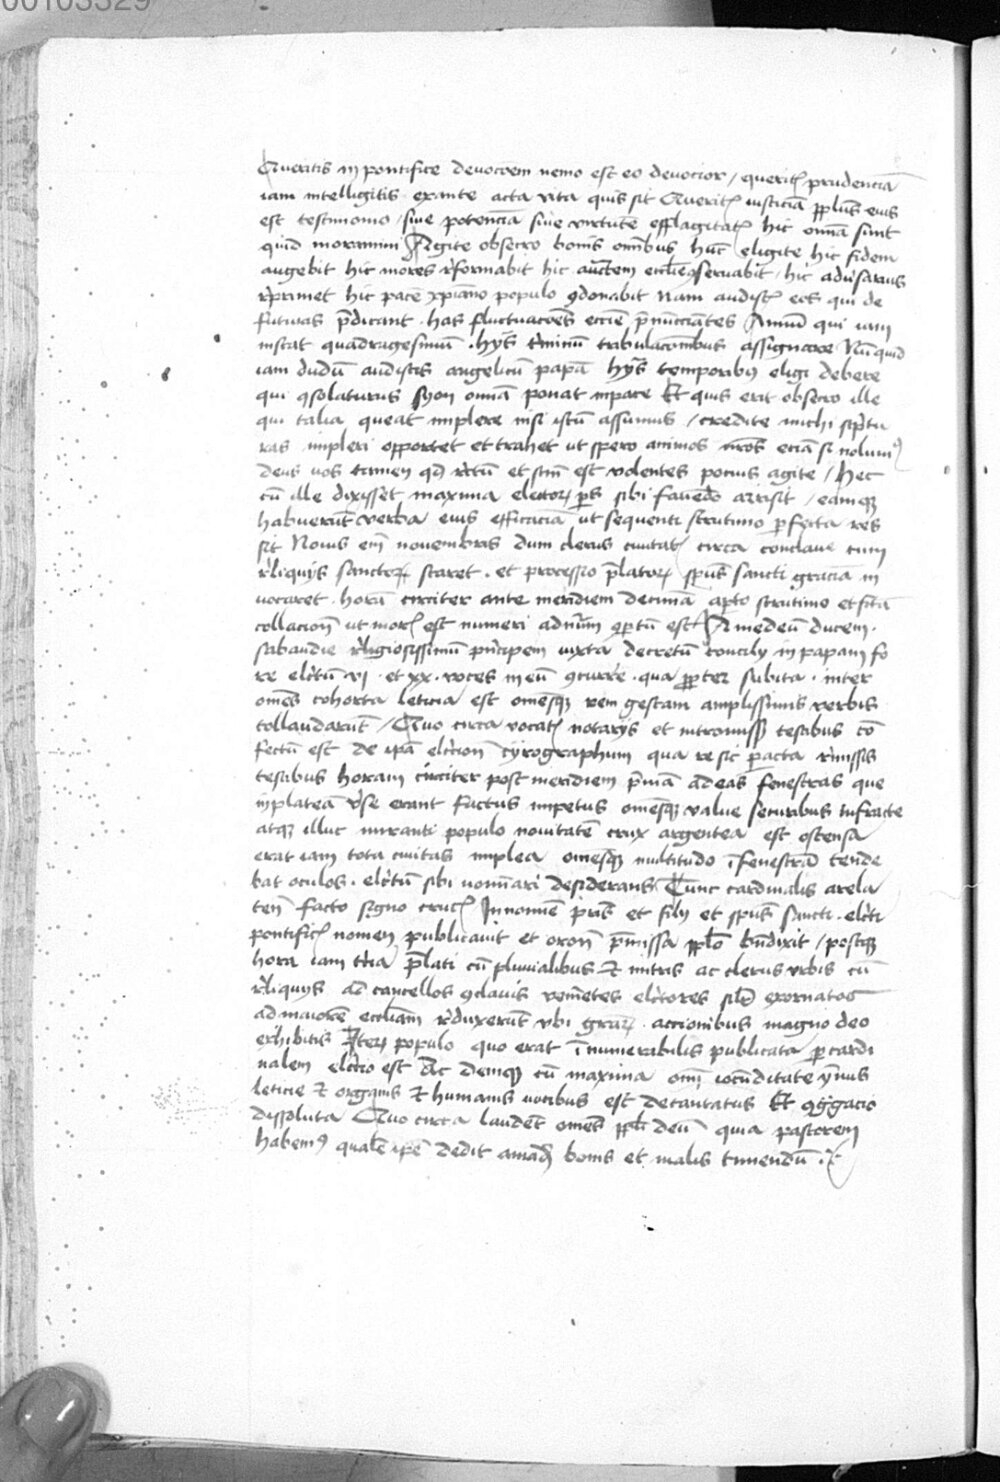 00103329
Queritis in pontifice devocoem nemo est eo devocior / querit prudenciā
iam intelligitis exante acta vita quis sit Querit iusticiā pplūs eius
est testimonio / sive potenciā sive virtutē efflagitat hic omnīa sunt
quid moramini Agite obsecro bonis omībus hūc eligite hic fidem
augebit hic mores rformabit hic auctem ecclīe 9servabit / hic advsarius
rprimet hic pacē xpiano populo 9donabit Nam audist eos qui de
futuris p̄dicant . has fluctuacoēs eccīe p̄nuncciātes Annū qui iam
instat quadragesimū . hys tminū tribulacōibus assignare Nūquid
iam dudū audistis angelicū papā hys temporibus eligi debere
qui 9solaturus syon omnīa ponat in pace Et quis erit obsecro ille
qui talia queat implere nisi istū assumitis / credite michi sptu
ras impleri opportet et trahet ut spero animos vros eciā si nolum9
deus vos tamen qd rctū et scm est volentes pocius agite / Hec
cū ille dixisset maxima elector ps sibi favēdo arrisit / eamque
habuerūt verba eius efficaciā ut sequenti scrutinio pfecta res
sit Nonis em novembris dum clerus civitat circa conclave cum
rliquys sanctor staret . et processio p̄lator spūs sancti graciā in
vocaret . horā circiter ante meridiem decimā apto scrutinio et fctā
collacione ut moris est numeri adnūm 9ptū est Amedeū ducem .
sabaudie rligiosissimū pncipem iuxta decretū concily in papam fo
re elctū vi . et xx . voces in eū 9currere . qua ppter subita . inter
omēs cohorta leticia est omēsque rem gestam amplissimis verbis
collaudarūt / Quo circa vocatis notarys et intromissis testibus cō
fectū est de ipā elctione cyrographum qua re sic pacta rmissis
testibus horam circiter post meridiem p̄mā ad eas fenestras que
in plateā vse erant factus impetus omēsque valve securibus infracte
atque illuc miranti populo novitatē crux argentea est ostensa
erat iam tota civitas implea omēsque multitudo ī fenestrā tende
bat oculos . elctū sibi nomīari desiderans Tunc cardinalis arela
teñ facto signo crucis In nomīe pris et fily et spūs sancti . elcti
pontificis nomen publicavit et oroē p̄missa pplo bndixit / postque
hora iam tcia p̄lati cū pluvialibus et mitris ac clerus urbis cū
rliquys ad cancellos 9clavis venietes elctores exornatos
ad maiorē eccliam rduxerūt ubi graz . accionibus magno deo
exhibitis Iterum populo quo erat īnumerabilis publicata p cardi
nalem elctio est Ac demque cū maxima omī iocūditate ymnus
leticie et organis et humanis vocibus est decantatus Et 9ggacio
dissoluta Quo circa laudēt omēs ppli deū quia pastorem
habem9 qualē ipē dedit amadū bonis et malis timendū